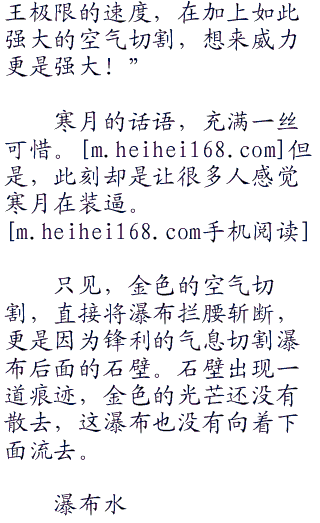 王极限的速度，在加上如此
强大的空气切割，想来威力
更是强大！”
寒月的话语，充满一丝
可惜。[m.heihei168.com]但
是，此刻却是让很多人感觉
寒月在装逼。
[m.heihei168.com手机阅读]
只见，金色的空气切
割，直接将瀑布拦腰斩断，
更是因为锋利的气息切割瀑
布后面的石壁。石壁出现一
道痕迹，金色的光芒还没有
散去，这瀑布也没有向着下
面流去。
瀑布水